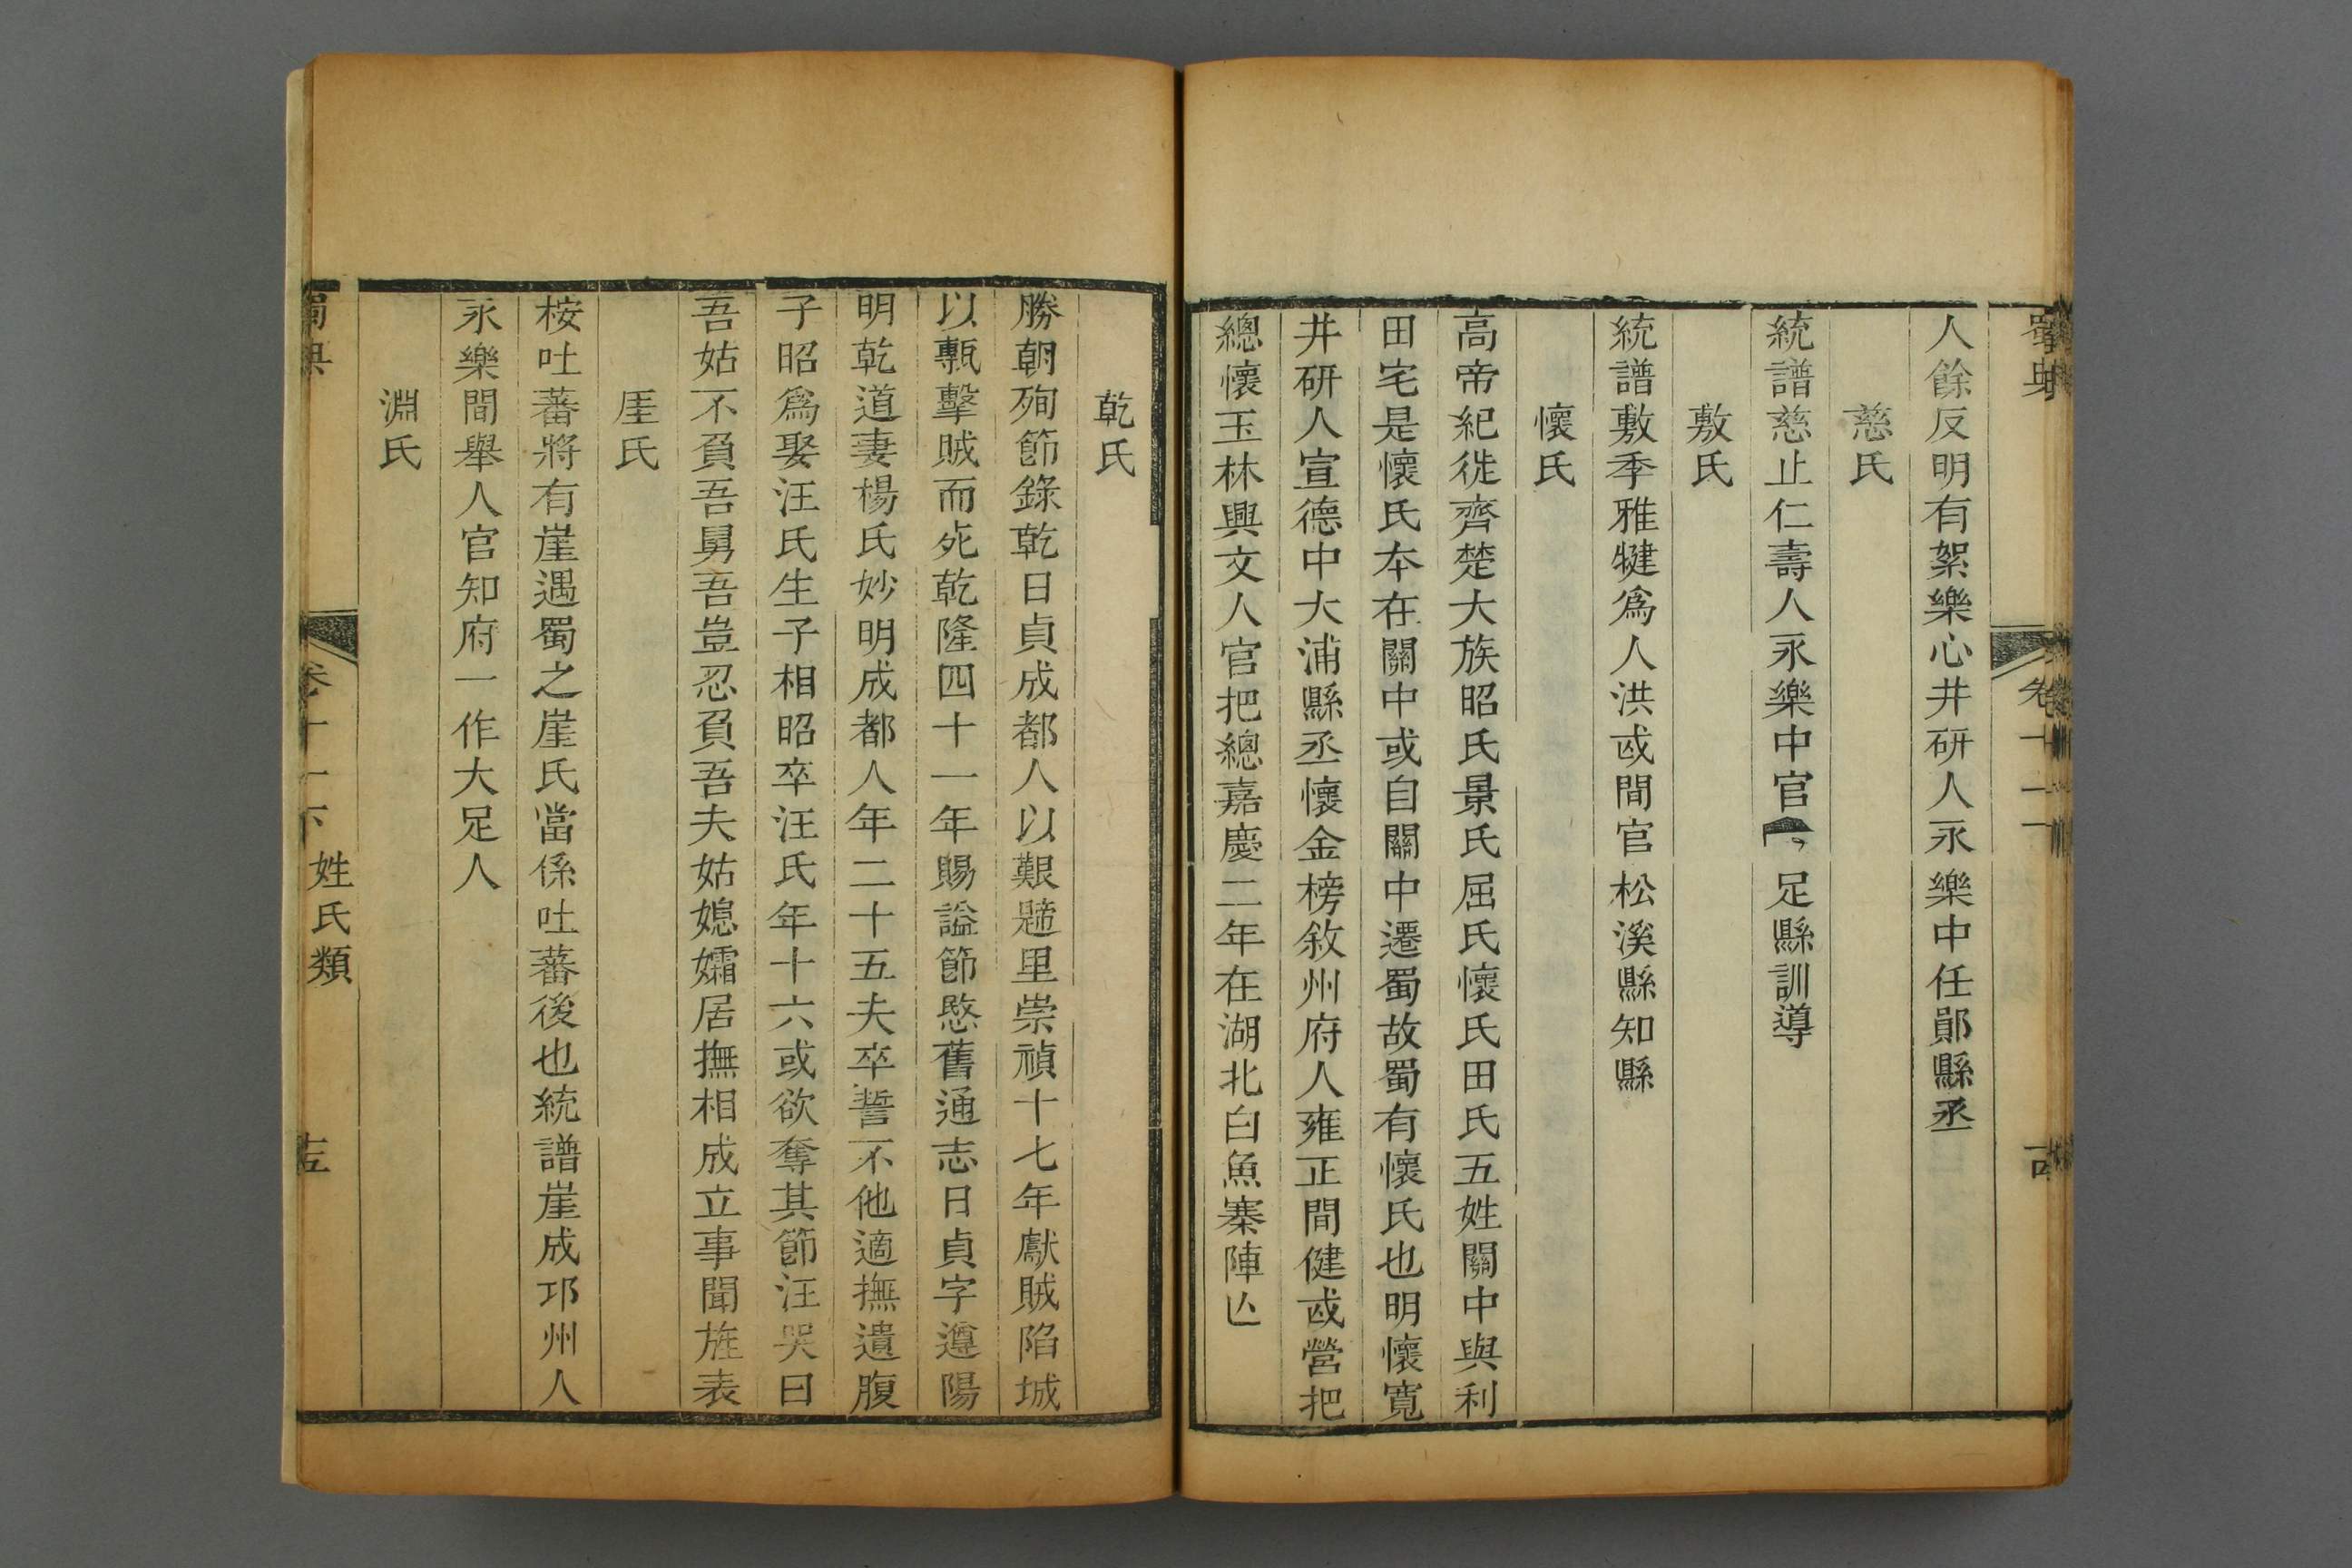 蜀典
卷十二
人餘反明有絮樂心井研人永樂中任鄖縣丞
慈氏
統譜慈止仁壽人永樂中官足縣訓導
敷氏
統譜敷季雅犍爲人洪武間官松溪縣知縣
懷氏
高帝紀徙齊楚大族昭氏景氏屈氏懷氏田氏五姓關中與利
田宅是懷氏本在關中或自關中遷蜀故蜀有懷氏也明懷寬
井研人宣德中大浦縣丞懷金榜敘州府人雍正間健武營把
總懷玉林興文人官把總嘉慶二年在湖北白魚寨陣亾
乾氏
勝朝殉節錄乾日貞成都人以艱題里崇禎十七年獻賊陷城
以甎擊賊而死乾隆四十一年賜謚節愍舊通志日貞字遵陽
明乾道妻楊氏妙明成都人年二十五夫卒誓不他適撫遺腹
子昭爲娶汪氏生子相昭卒汪氏年十六或欲奪其節汪哭曰
吾姑不負吾舅吾豈忍負吾夫姑媳孀居撫相成立事聞旌表
厓氏
桉吐蕃將有崖遇蜀之崖氏當係吐蕃後也統譜崖成邛州人
永樂間舉人官知府一作大足人
淵氏
蜀典
卷十一下
姓氏類